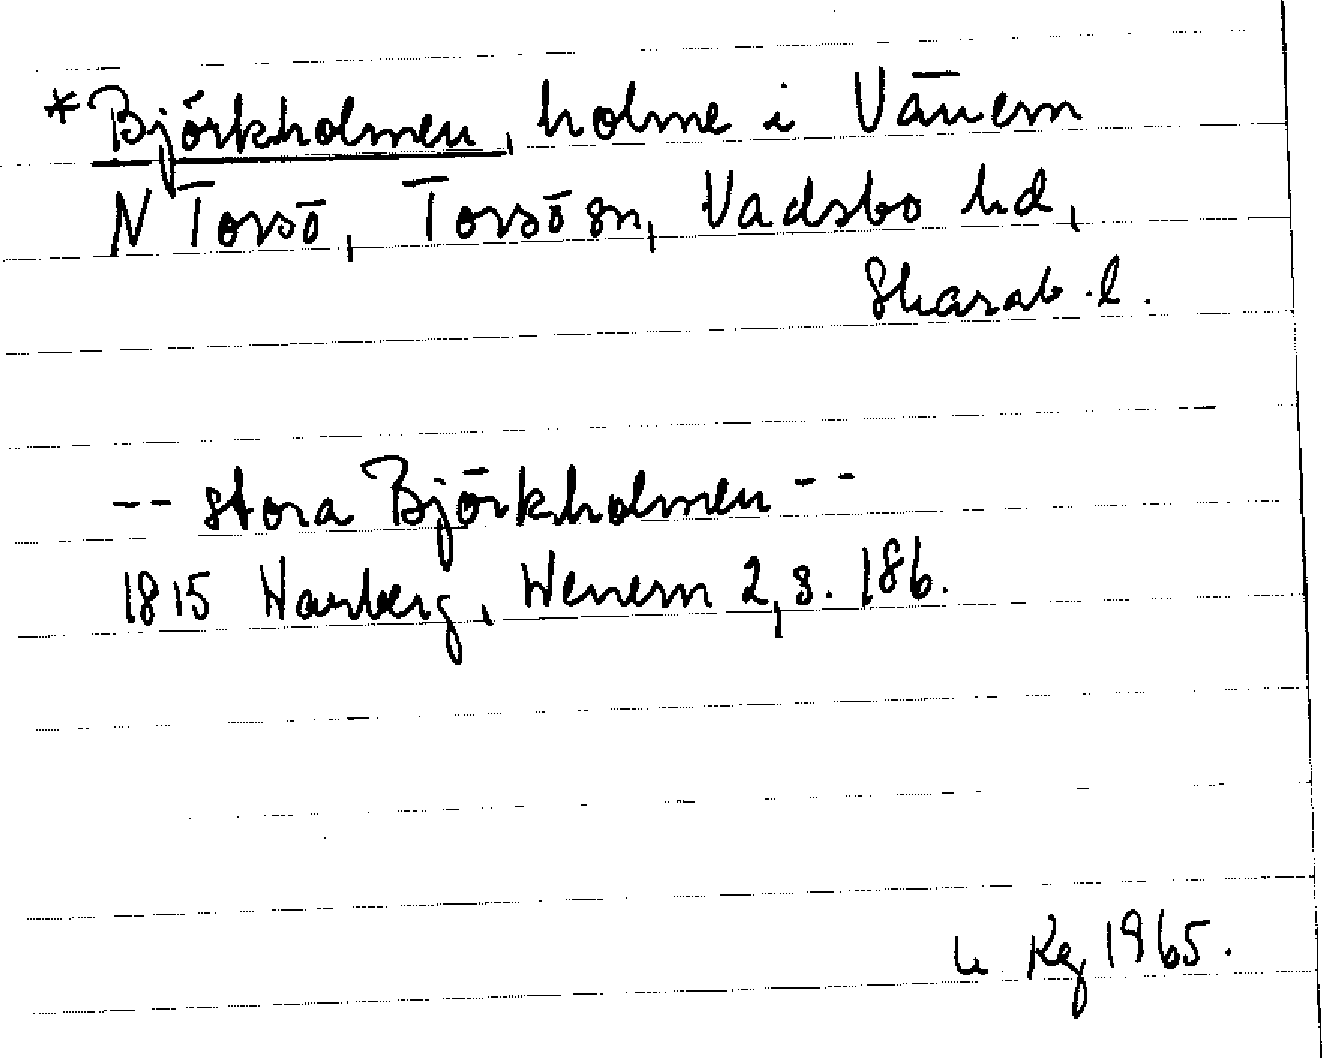 *Björkholmen, holme i Vänern
N Torsö, Torsö sn, Vadsbo hd,
Skarab. l.
-- stora Björkholmen --
1815 Warberg, Wenern 2, s. 186.
Kg 1965.